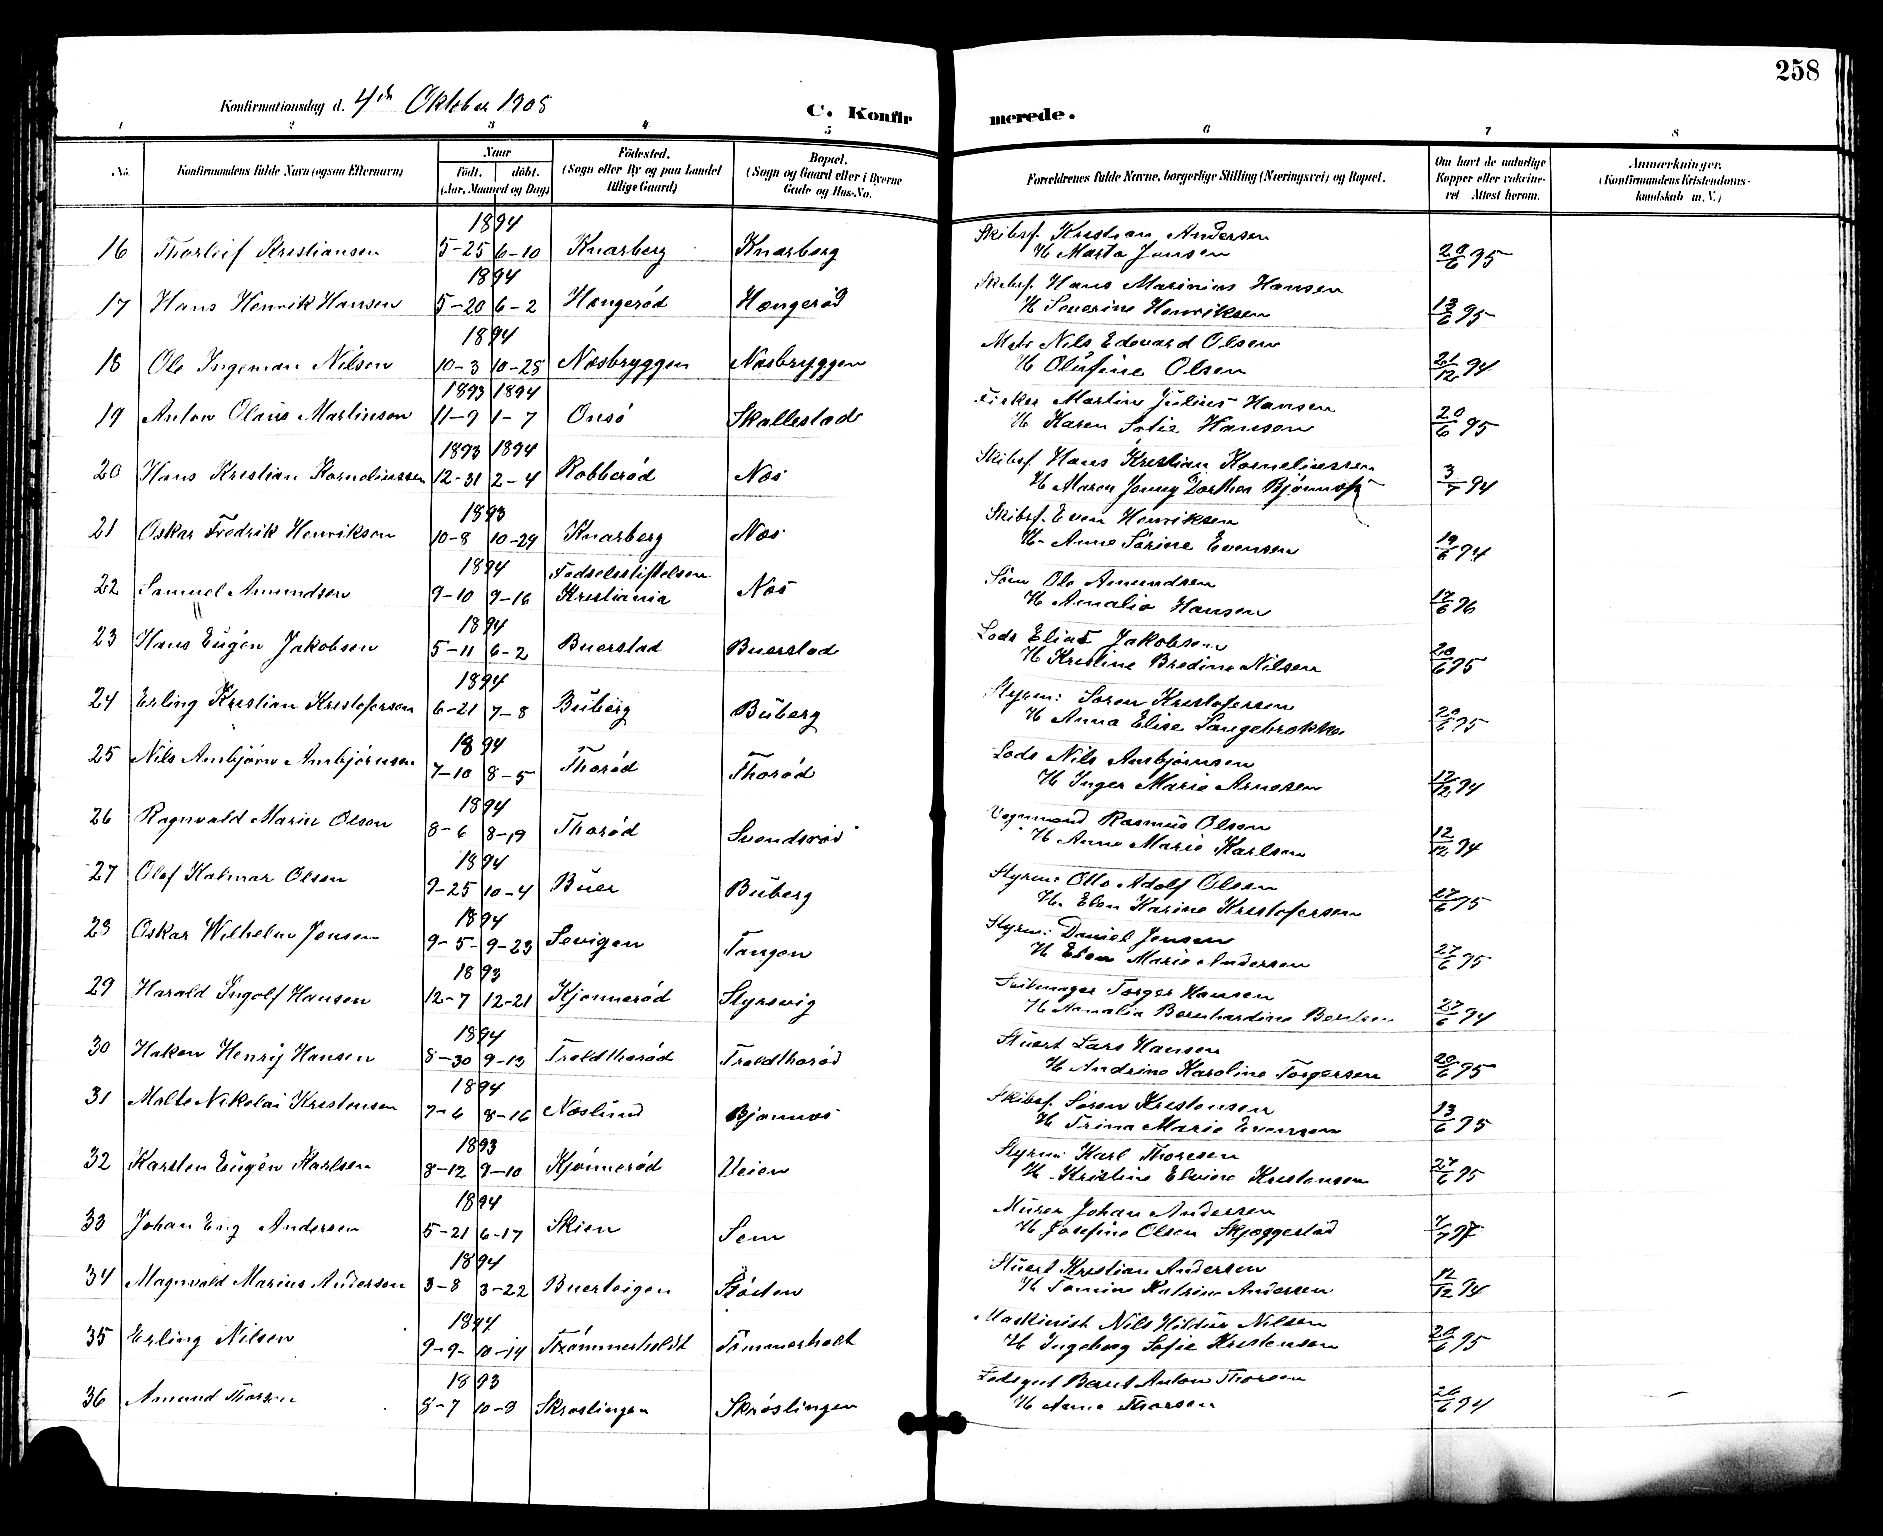 258
Konfirmationsdag d. 4de Oktober 1908
C. Konfirmerede.
1 2 3 4 5 6 7 8
No. Konfirmandens fulde Navn (ogsaa Efternavn) Naar Født. døbt. (Aar, Maaned og Dag) Födested. (Sogn eller By og paa Landet tillige Gaard) Bopæl. (Sogn og Gaard eller i Byerne Gade og Hus-No. Forældrenes fulde Navne, borgerlige Stilling (Næringsvei) og Bopæl. Om havt de naturlige Kopper eller vaccineret Attest herom. Anmærkninger. (Konfirmandens Kristendomskundskab m. V.)
1894 Skibsf. Kristian Andersen
16 Thorleif Kristiansen 5-25 6-10 Knarberg Knarberg H Marta Jensen 20/6 95
1894 Skibsf. Hans Marinius Hansen
17 Hans Henrik Hansen 5-20 6-2 Hængerød Hængerød H Severine Henriksen 13/6 95
1894 Matr Nils Edevard Olsen
18 Ole Ingeman Nilsen 10-3 10-28 Næsbryggen Næsbryggen H Olufine Olsen 21/12 94
1893 1894 Fisker Martin Julius Hansen
19 Anton Olaus Martinson 11-9 1-7 Onsø Skallestad H Karen Sofie Hanson 20/6 95
1893 1894 Skibsf. Hans Kristian Korneliussen
20 Hans Kristian Korneliussen 12-31 2-4 Robberød Næs H Maren Jenny Dorthea 3/7 94
1893 Skibsf. Even Henriksen
21 Oskar Fredrik Henriksen 10-8 10-29 Knarberg Næs H. Anne Sørine Evensen 19/6 94
1894 Fødselsstiftelsen Søm Ole Amundsen
22 Samuel Amundsen 9-10 9-16 Kristiania Næs H Amalie Hansen 17/6 96
1894 Lods Elias Jakobsen
23 Hans Eugen Jakobsen 5-11 6-2 Buerstad Buerstad H Kristine Bredine Nilsen 20/6 95
1894 Styrm: Søren Kristofersen
24 Erling Kristian Kristofersen 6-21 7-8 Buberg Buberg H Anna Elise Langebrekke 20/6 95
1894 Lods Nils Ambjørnsen
25 Nils Ambjørn Ambjørnsen 7-10 8-5 Thorød Thorød H Inger Marie Arnesen 12/12 94
1894 Vognmand Rasmus Olsen
26 Ragnvald Marin Olsen 8-6 8-19 Thorød Svendsrød H Anne Marie Karlsen 12/12 94
1894 Styrm: Otto Adolf Olsen
27 Olaf Kalmar Olsen 9-25 10-4 Buer Buberg H. Elen Karine Kristofersen 27/6 95
1894 Styrm: Daniel Jensen
28 Oskar Wilhelm Jensen 9-5- 9-23 Sevigen Tangen H Elen Marie Andersen 27/6 95
1893 Torger Hansen
29 Harald Ingolf Hansen 12-7 12-21 Kjønnerød Styrsvig H Amalia Bernhardine Berntsen 27/6 94
1894 Stuert Lars Hansen
30 Hakon Henry Hansen 8-30 9-13 Troldthorød Troldthorød H Andrine Karoline Torgersen 20/6 95
1894 Skibsf. Søren Kristensen
31 Malte Nikolai Kristensen 7-6 8-16 Næslund Bjønnes H Trine Marie Evensen 13/6 95
1893 Styrm: Karl Thoresen
32 Karsten Eugén Karlsen 8-12 9-10 Kjønnerød Veien H. Kristine Elvine Kristensen 27/6 95
1894 Murer Johan Andersen
33 Johan Eng Andersen 5-21 6-17 Skien Sem H Josefine Olsen Skjæggestad 7/7 97
1894 Stuert Kristian Andersen
34 Magnvald Marius Andersen 3-8 3-22 Buerteigen Røsten H Tomine Katrine Andersen 12/12 94
1894 Maskinist Nils Hildur Nilsen
35 Erling Nilsen 9-9- 10-14 Trømmerholdt Tømmerholt H Ingeborg Sofie Kristensen 20/6 95
1893 Lodsgut Bernt Anton Thorsen
36 Amund Thorsen 8-7 10-3 Skrøslingen Skrøslingen H Anne Thorsen 26/6 94